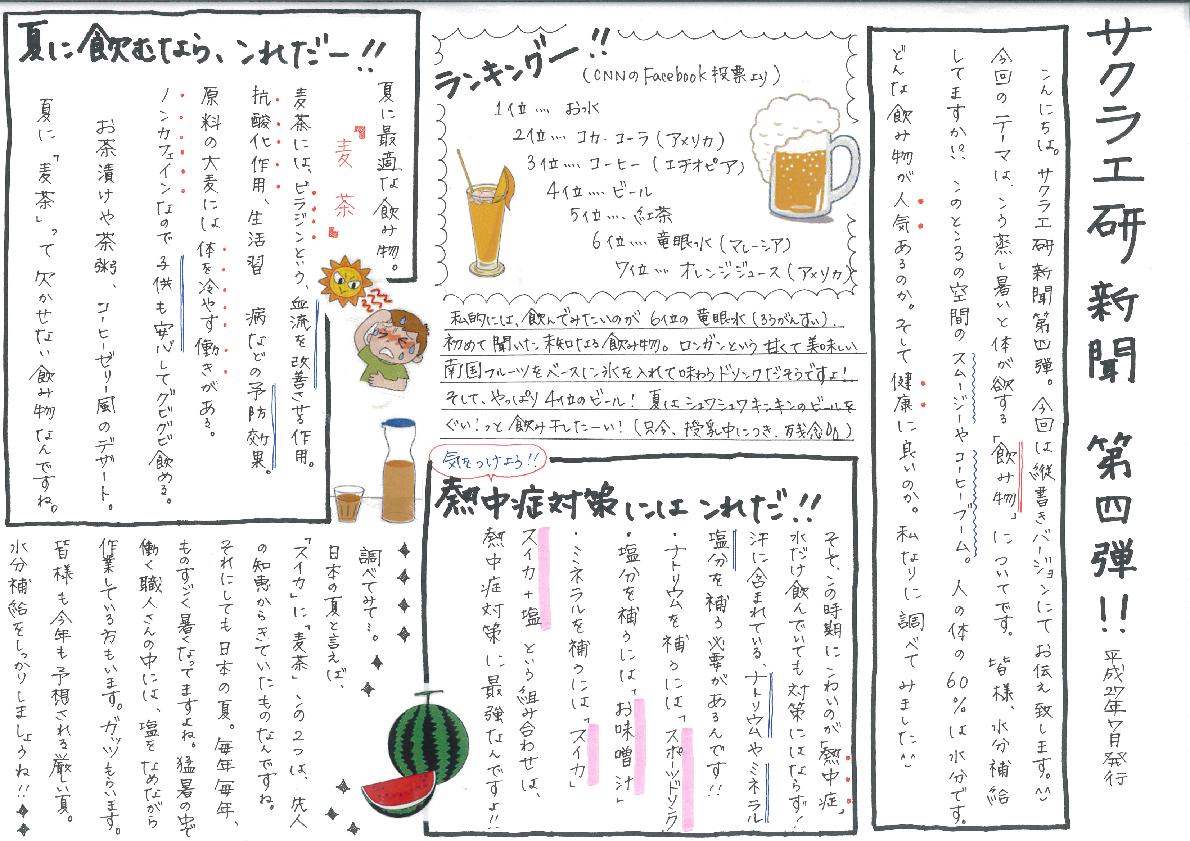 サクラ工研新聞 第四弾!!
平成27年7月発行
こんにちは。サクラ工研新聞第四弾。今回は縦書きバージョンにてお伝え致します。^^
今回のテーマは、こう蒸し暑いと体が欲する「飲み物」についてです。皆様、水分補給
してますか!? このところの空間のスムージーやコーヒーブーム。人の体の60%は水分です。
どんな飲み物が人気あるのか。そして健康に良いのか。私なりに調べてみました^^
ランキングー!!
(CNNのFacebook投票より)
1位…. お水
2位…. コカ・コーラ(アメリカ)
3位…. コーヒー(エチオピア)
4位…. ビール
5位…. 紅茶
6位…. 竜眼水(マレーシア)
7位…. オレンジジュース(アメリカ)
私的には、飲んでみたいのが6位の竜眼水(ろうがんすい)、
初めて聞いた未知なる飲み物。ロンガンという甘くて美味しい
南国フルーツをベースに氷を入れて味わうドリンクだそうですよ!
そして、やっぱり4位のビール! 夏はシュワシュワキンキンのビールを
ぐい!っと飲み干したーい!(只今、授乳中につき、残念)
夏に飲むなら、これだー!!
夏に最適な飲み物。
『麦茶』
麦茶には、ピラジンという、血流を改善させる作用。
抗酸化作用、生活習 病などの予防効果。
原料の大麦には体を冷やす働きがある。
ノンカフェインなので子供も安心してグビグビ飲める。
お茶漬けや茶粥、コーヒーゼリー風のデザート。
夏に「麦茶」って欠かせない飲み物なんですね。
気をつけよう!!
熱中症対策にはこれだ!!
そそ、この時期にこわいのが「熱中症」
水だけ飲んでいても対策にはならず!
汗に含まれている、ナトリウムやミネラル
塩分を補う必要があるんです!!
・ナトリウムを補うには「スポーツドリンク
・塩分を補うには「お味噌汁」
・ミネラルを補うには「スイカ」
スイカ+塩 という組み合わせは、
熱中症対策に最強なんですよ!!
調べてみて…。
日本の夏と言えば、
「スイカ」に「麦茶」この2つは、先人
の知恵からきていたものなんですね。
それにしても日本の夏。毎年毎年、
ものすごく暑くなってますよね。猛暑の中で
働く職人さんの中には、塩をなめながら
作業している方もいます。ガッツもらいます。
皆様も今年も予想される厳しい夏。
水分補給をしっかりしましょうね!!